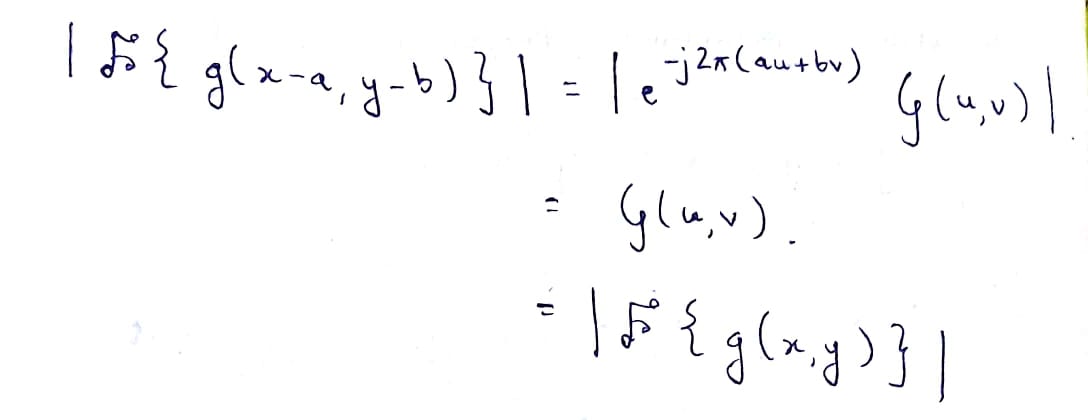 |𝓕{g(x-a, y-b)}| = |e^{-j2π(au+bv)} G(u,v)|.
= G(u,v).
= |𝓕{g(x,y)}|